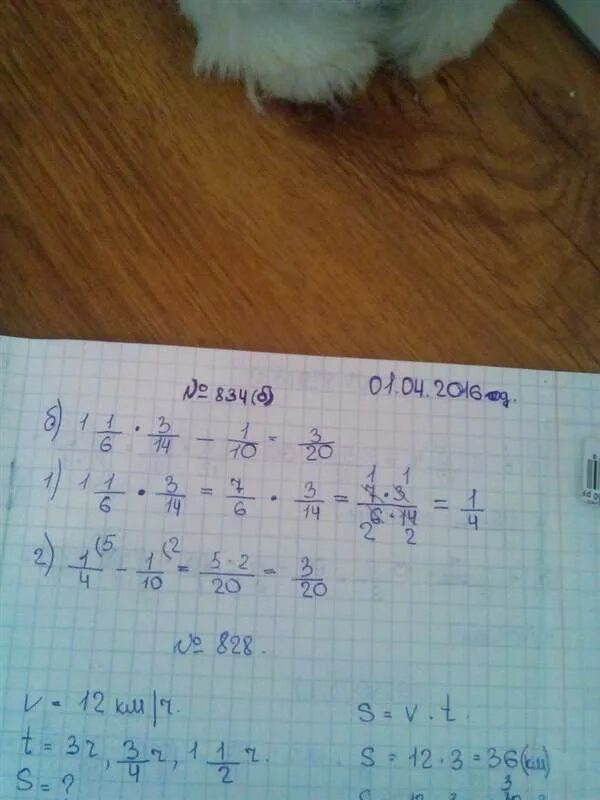 № 834(б) 01.04.2016 год.
б) 1 1/6 · 3/14 - 1/10 = 3/20
1) 1 1/6 · 3/14 = 7/6 · 3/14 = 7·3/6·14 = 1/4
1 1
2 2
2) 1/4 (5 - 1/10 (2 = 5·2/20 = 3/20
№ 828.
V = 12 км/ч.
t = 3ч, 3/4 ч, 1 1/2 ч.
S = ?
S = V · t.
S = 12 · 3 = 36 (км)